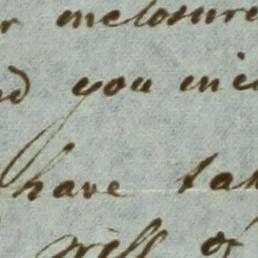 r inclosure
nd you inc
have tak
will of